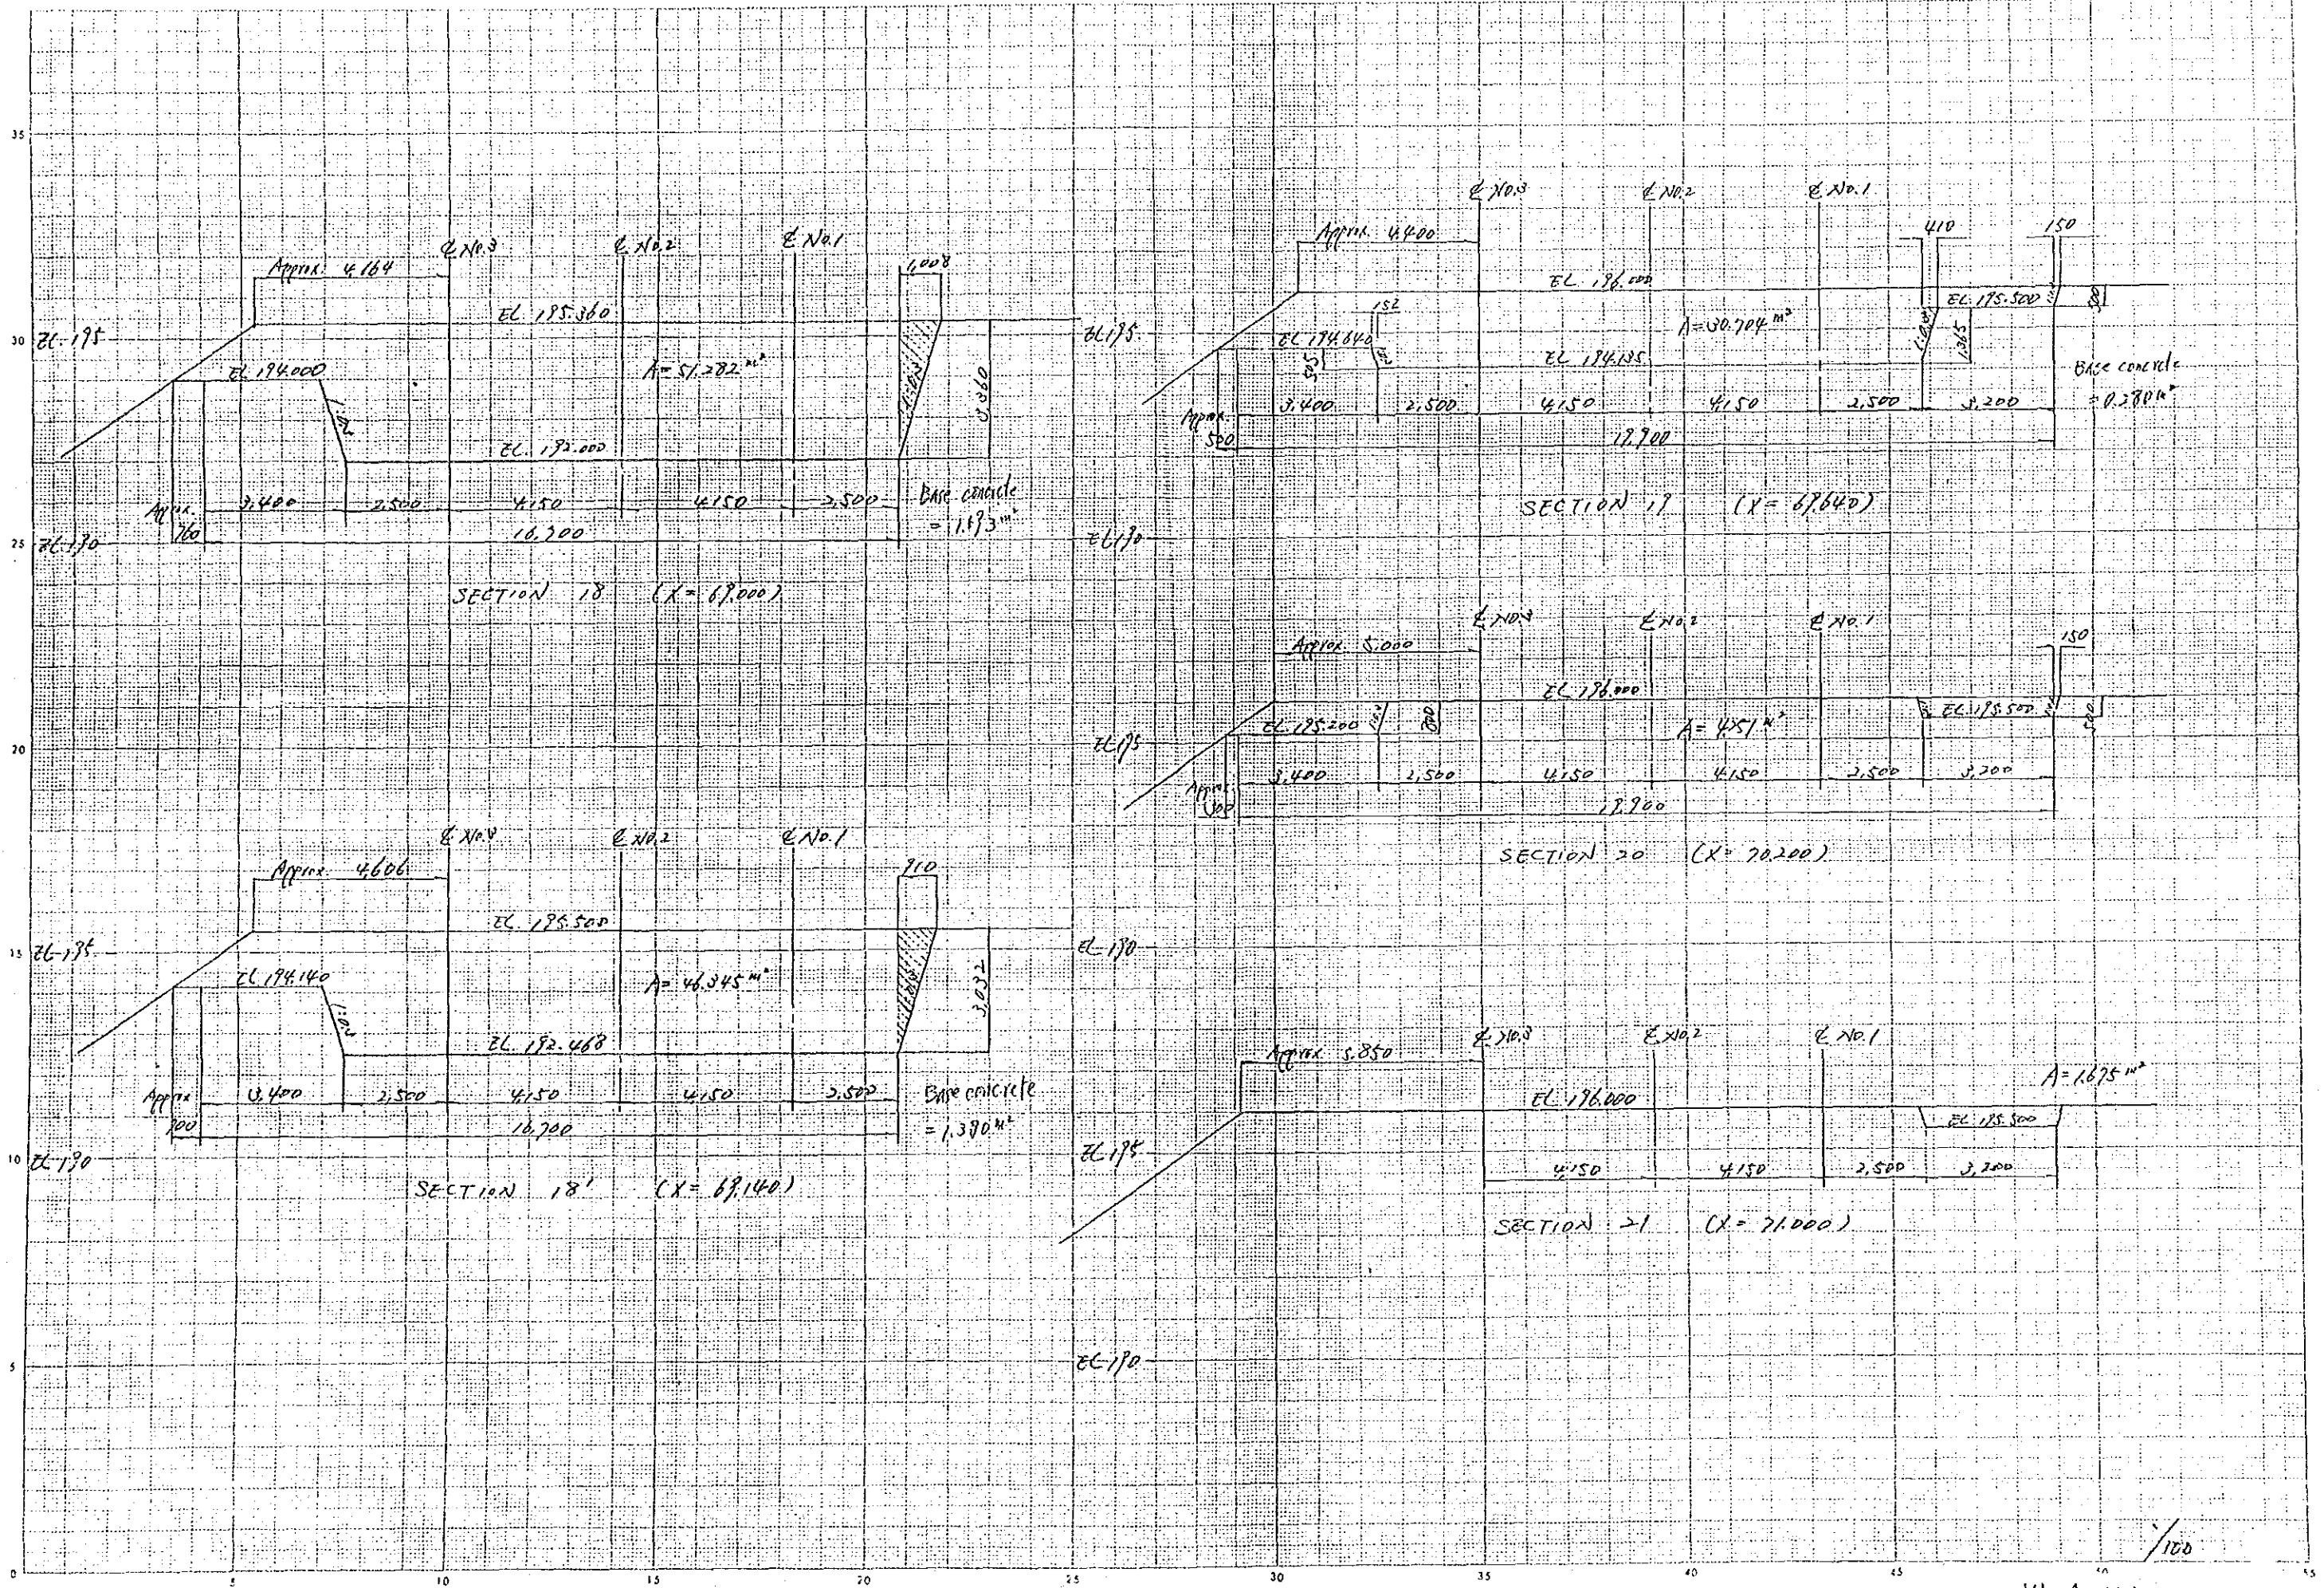 ℄ No.3
℄ No.2
℄ No.1
Approx. 4,164
1,008
EL 195.360
EL 195
A = 51.282 m²
EL 194.000
1:0.3
3,360
EL. 192.000
Approx.
760
3,400
2,500
4,150
4,150
2,500
Base concrete
= 1.693 m²
16,700
EL 190
SECTION 18 (X = 69.000)
℄ No.3
℄ No.2
℄ No.1
Approx. 4,606
910
EL. 195.500
EL 195
EL 194.140
A = 46.345 m²
1:0.3
3,032
EL 192.468
Approx
700
3,400
2,500
4,150
4,150
2,500
Base concrete
= 1.380 m²
16,700
EL 190
SECTION 18' (X = 69.140)
℄ No.3
℄ No.2
℄ No.1
Approx. 4,400
410
150
EL 196.000
152
EL 195.500
500
EL 195
EL 194.640
A = 30.704 m²
505
EL 194.135
1:0.3
1,365
Base concrete
= 0.280 m²
Approx.
500
3,400
2,500
4,150
4,150
2,500
3,200
19,900
SECTION 19 (X = 69.640)
EL 190
℄ No.3
℄ No.2
℄ No.1
Approx 5,000
150
EL 196.000
EL 195.200
800
A = 4.451 m²
EL 195.500
500
EL 195
Approx.
3,400
2,500
4,150
4,150
2,500
3,200
19,900
SECTION 20 (X = 70.200)
EL 190
℄ No.3
℄ No.2
℄ No.1
Approx 5,850
A = 1.675 m²
EL 196.000
EL 195.500
EL 195
4,150
4,150
2,500
3,200
SECTION 21 (X = 71.000)
EL 190
1/100
35
30
25
20
15
10
5
0
5
10
15
20
25
30
35
40
45
50
55